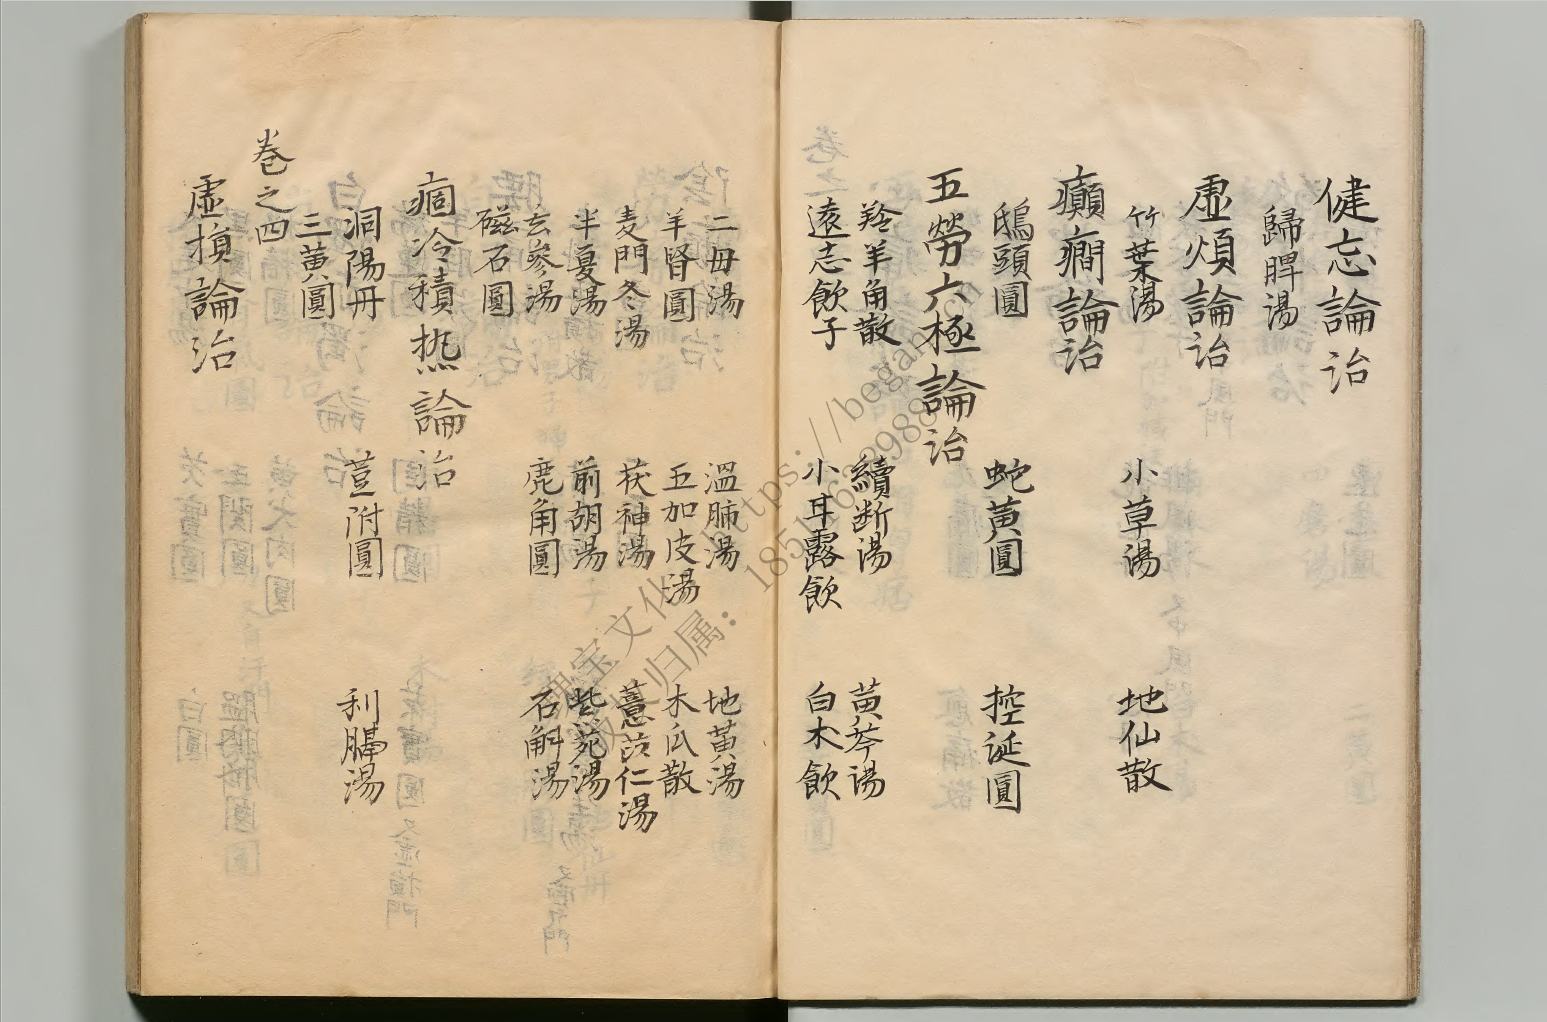 健忘論治
歸脾湯
虛煩論治
竹葉湯 小草湯 地仙散
癲癇論治
鴟頭圓 蛇黃圓 控涎圓
五勞六極論治
羚羊角散 續断湯 黃芩湯
遠志飲子 小耳露飲 白木飲
二毋湯 溫肺湯 地黃湯
羊腎圓 五加皮湯 木瓜散
麦門冬湯 茯神湯 薏苡仁湯
半夏湯 前胡湯 紫菀湯
玄參湯 鹿角圓 石斛湯
磁石圓
痼冷積热論治
洞陽丹 荳附圓 利膈湯
三黃圓
卷之四
虛損論治